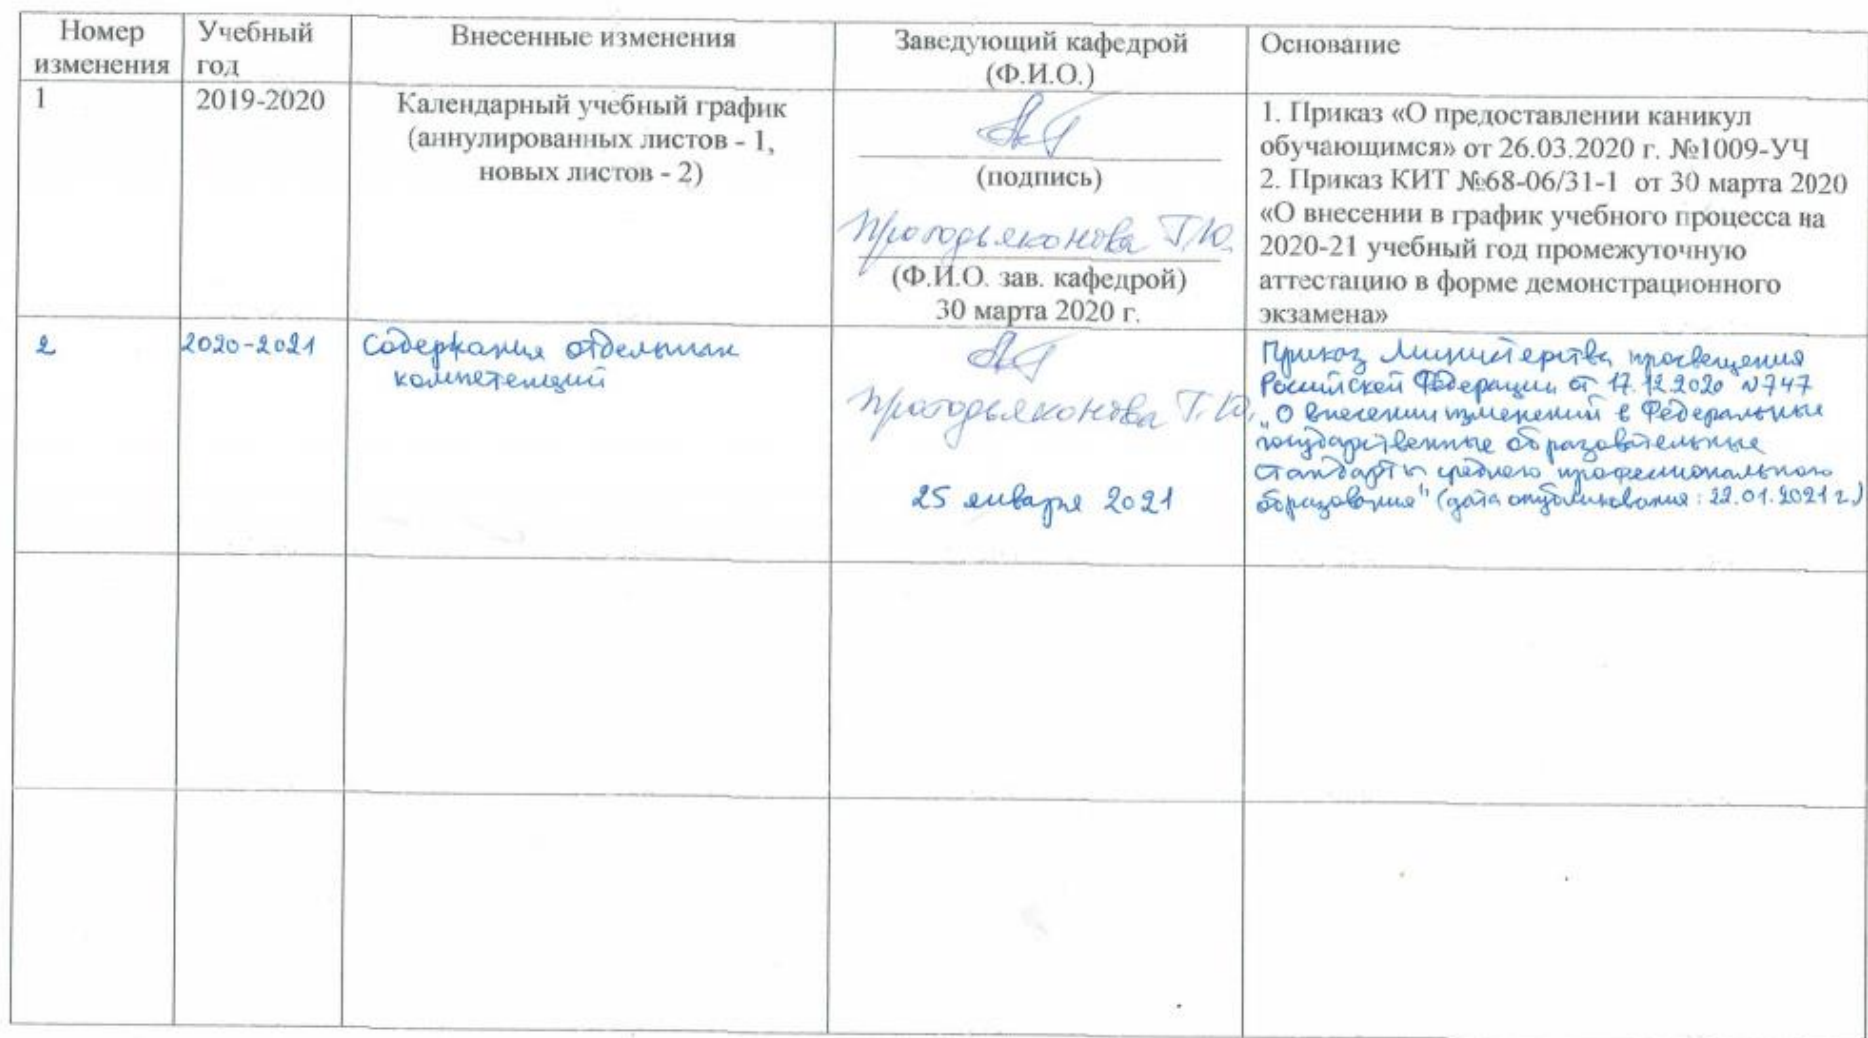 Номер изменения
Учебный год
Внесенные изменения
Заведующий кафедрой (Ф.И.О.)
Основание
1
2019-2020
Календарный учебный график
(аннулированных листов - 1,
новых листов - 2)
(подпись)
Протодьяконова Г.Ю.
(Ф.И.О. зав. кафедрой)
30 марта 2020 г.
1. Приказ «О предоставлении каникул
обучающимся» от 26.03.2020 г. №1009-УЧ
2. Приказ КИТ №68-06/31-1 от 30 марта 2020
«О внесении в график учебного процесса на
2020-21 учебный год промежуточную
аттестацию в форме демонстрационного
экзамена»
2
2020-2021
Содержания отдельных
компетенций
Протодьяконова Г.Ю.
25 января 2021
Приказ Министерства просвещения
Российской Федерации от 17.12.2020 N747
"О внесении изменений в Федеральные
государственные образовательные
стандарты среднего профессионального
образования" (дата опубликования: 22.01.2021 г.)